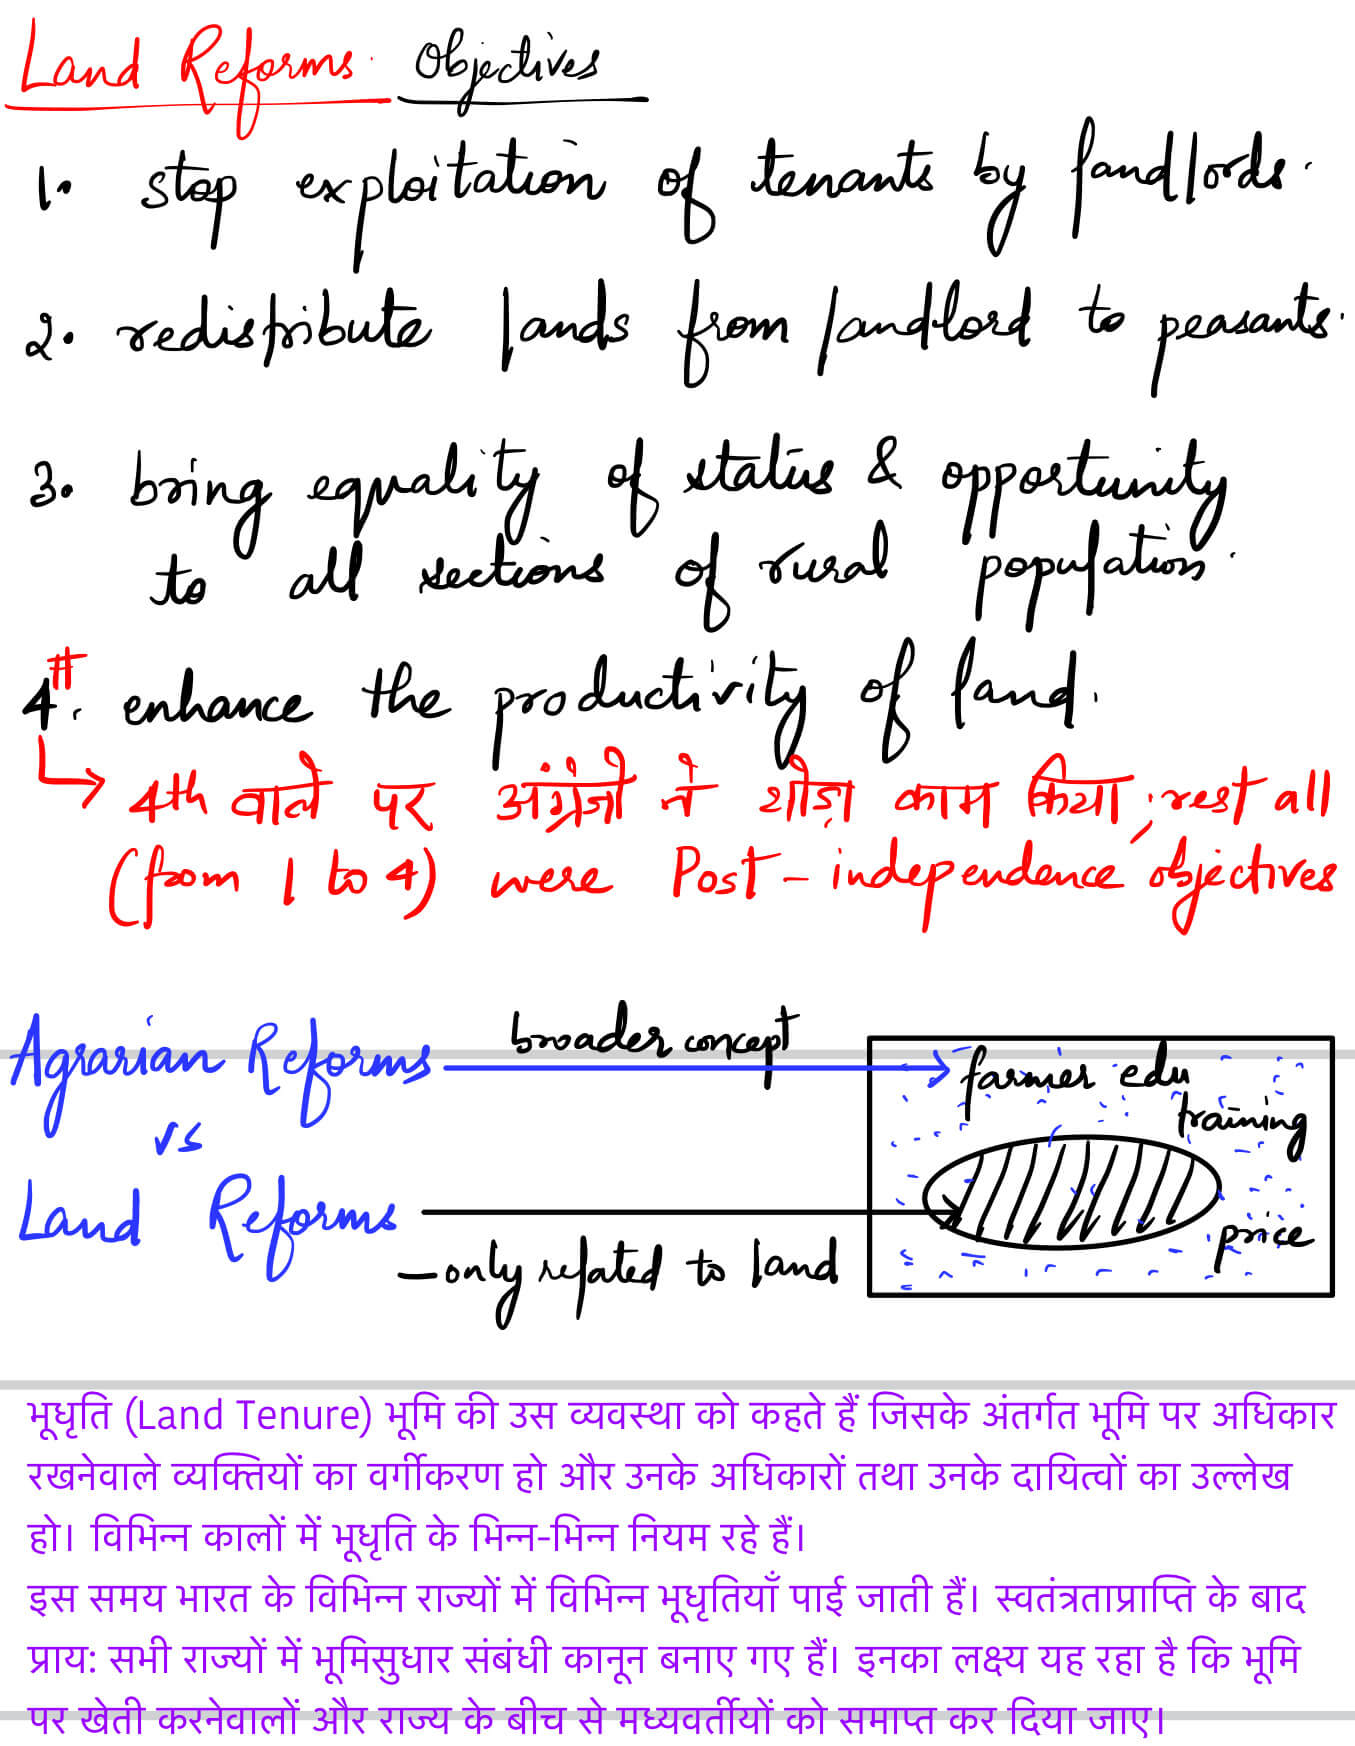 Land Reforms. Objectives
1. stop exploitation of tenants by landlords.
2. redistribute lands from landlord to peasants.
3. bring equality of status & opportunity
to all sections of rural population.
4#. enhance the productivity of land.
4th वाले पर अंग्रेजों ने थोड़ा काम किया; rest all
(from 1 to 4) were Post-independence objectives
broader concept
Agrarian Reforms
farmer edu
training
vs
Land Reforms
price
- only related to land
भूधृति (Land Tenure) भूमि की उस व्यवस्था को कहते हैं जिसके अंतर्गत भूमि पर अधिकार
रखनेवाले व्यक्तियों का वर्गीकरण हो और उनके अधिकारों तथा उनके दायित्वों का उल्लेख
हो। विभिन्न कालों में भूधृति के भिन्न-भिन्न नियम रहे हैं।
इस समय भारत के विभिन्न राज्यों में विभिन्न भूधृतियाँ पाई जाती हैं। स्वतंत्रताप्राप्ति के बाद
प्राय: सभी राज्यों में भूमिसुधार संबंधी कानून बनाए गए हैं। इनका लक्ष्य यह रहा है कि भूमि
पर खेती करनेवालों और राज्य के बीच से मध्यवर्तीयों को समाप्त कर दिया जाए।